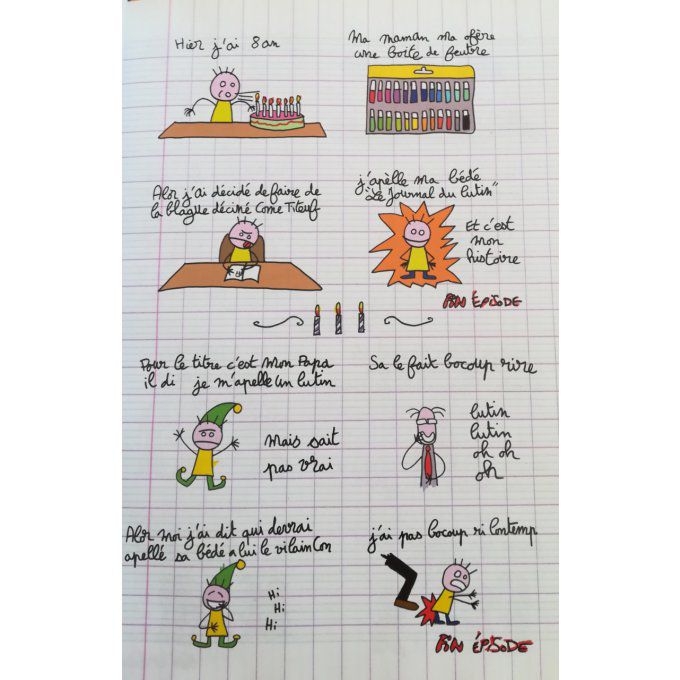 Hier j'ai 8 an
Ma maman ma ofère
une boite de feutre
Alor j'ai décidé de faire de
la blague déciné Come Titeuf
j'apèlle ma bédé
"Le Journal du lutin"
Et c'est
mon
histoire
FIN ÉPISODE
Pour le titre c'est mon Papa
il di je m'apelle un lutin
mais sait
pas vrai
Sa le fait bocoup rire
lutin
lutin
oh oh
oh
Alor moi j'ai dit qui devrai
apellé sa bédé a lui le vilain Con
Hi
Hi
Hi
j'ai pas bocoup ri lontemp
FIN ÉPISODE